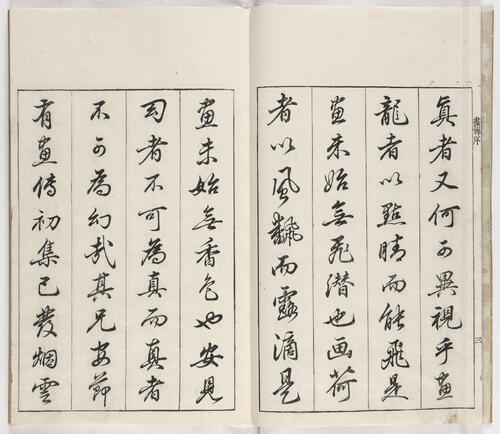 畫傳序
三
眞者又何可異視乎畫
龍者以點睛而能飛是
畫未始無飛潛也画荷
者以風飜而露滴是
畫未始無香色也安見
幻者不可為真而真者
不可為幻哉其兄安節
有畫傳初集已發烟雲